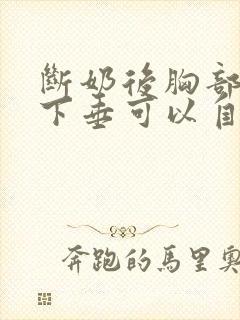 斷奶後胸部
下垂可以自
奔跑的馬里奧